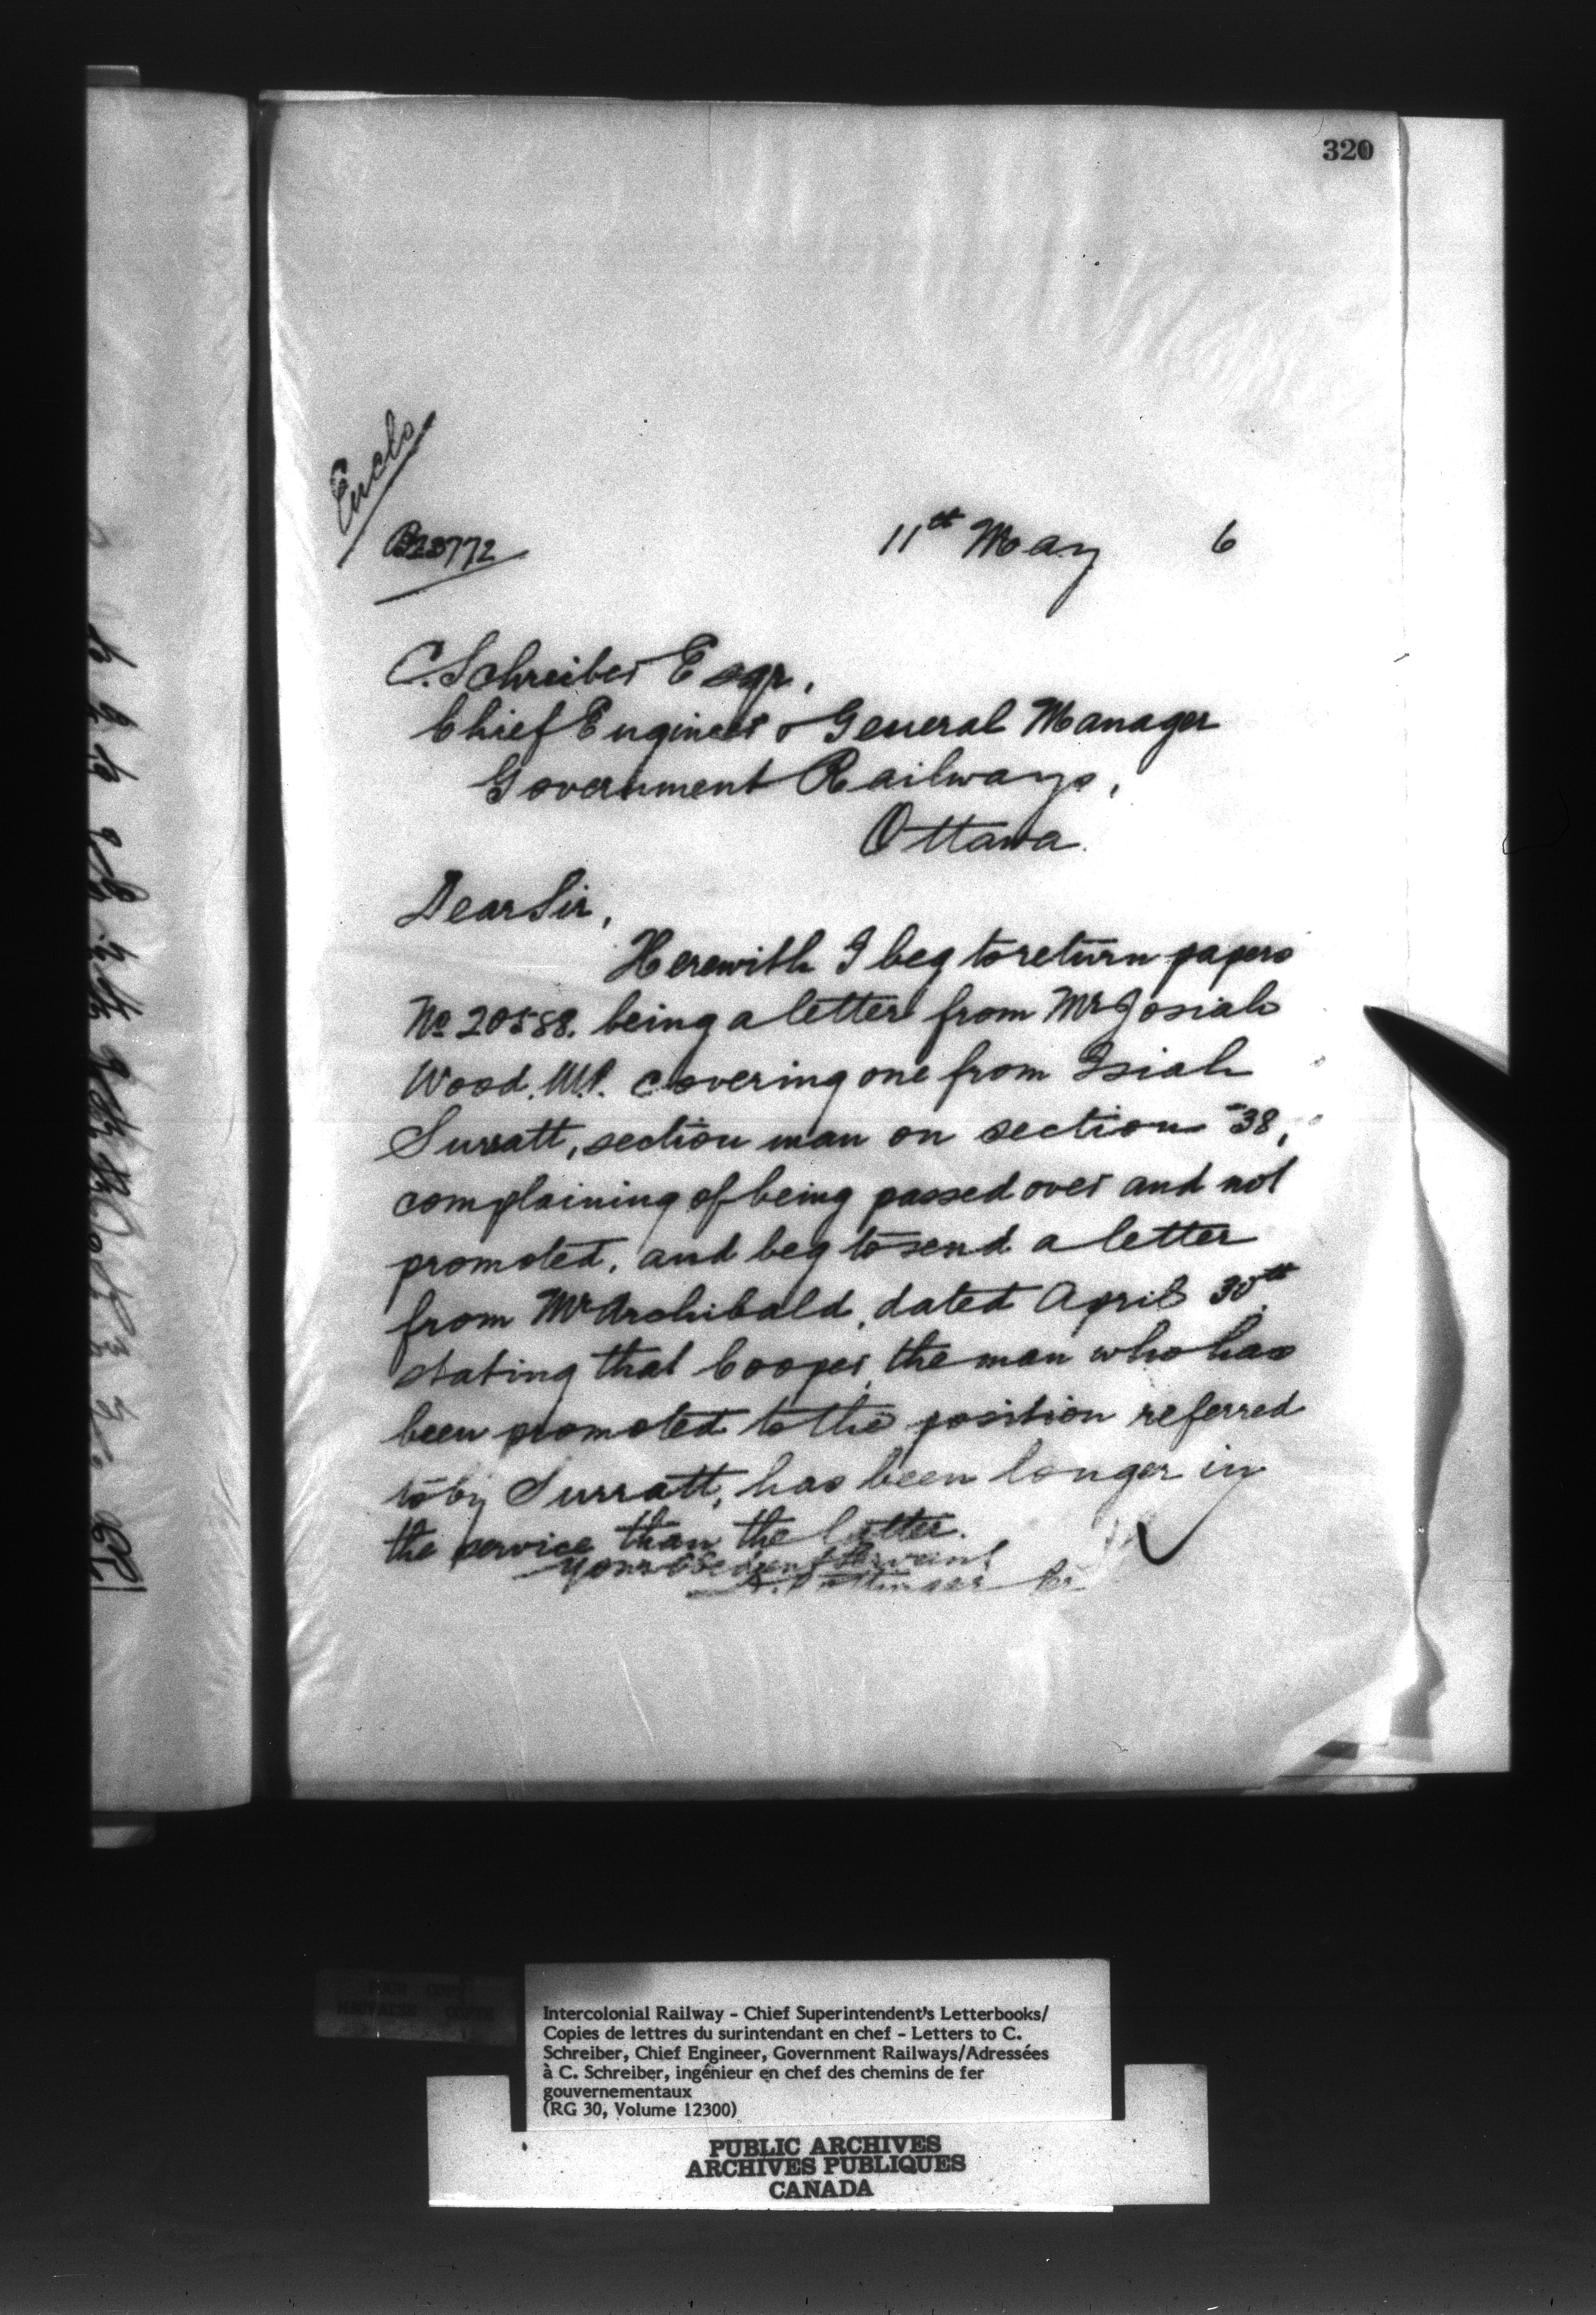 320
Enclo
11th May 6
C. Schreiber Esqr,
Chief Engineer & General Manager
Government Railways,
Ottawa.
Dear Sir,
Herewith I beg to return papers
No 20588. being a letter from Mr Josiah
Wood, M.P. covering one from Isiah
Surratt, section man on section 38,
complaining of being passed over and not
promoted, and beg to send a letter
from Mr Archibald, dated April 30th
stating that Cooper, the man who has
been promoted to the position referred
to by Surratt, has been longer in
the service than the latter.
Your Obedient Servant
D. Pottinger
Intercolonial Railway - Chief Superintendent's Letterbooks/
Copies de lettres du surintendant en chef - Letters to C.
Schreiber, Chief Engineer, Government Railways/Adressées
à C. Schreiber, ingénieur en chef des chemins de fer
gouvernementaux
(RG 30, Volume 12300)
PUBLIC ARCHIVES
ARCHIVES PUBLIQUES
CANADA